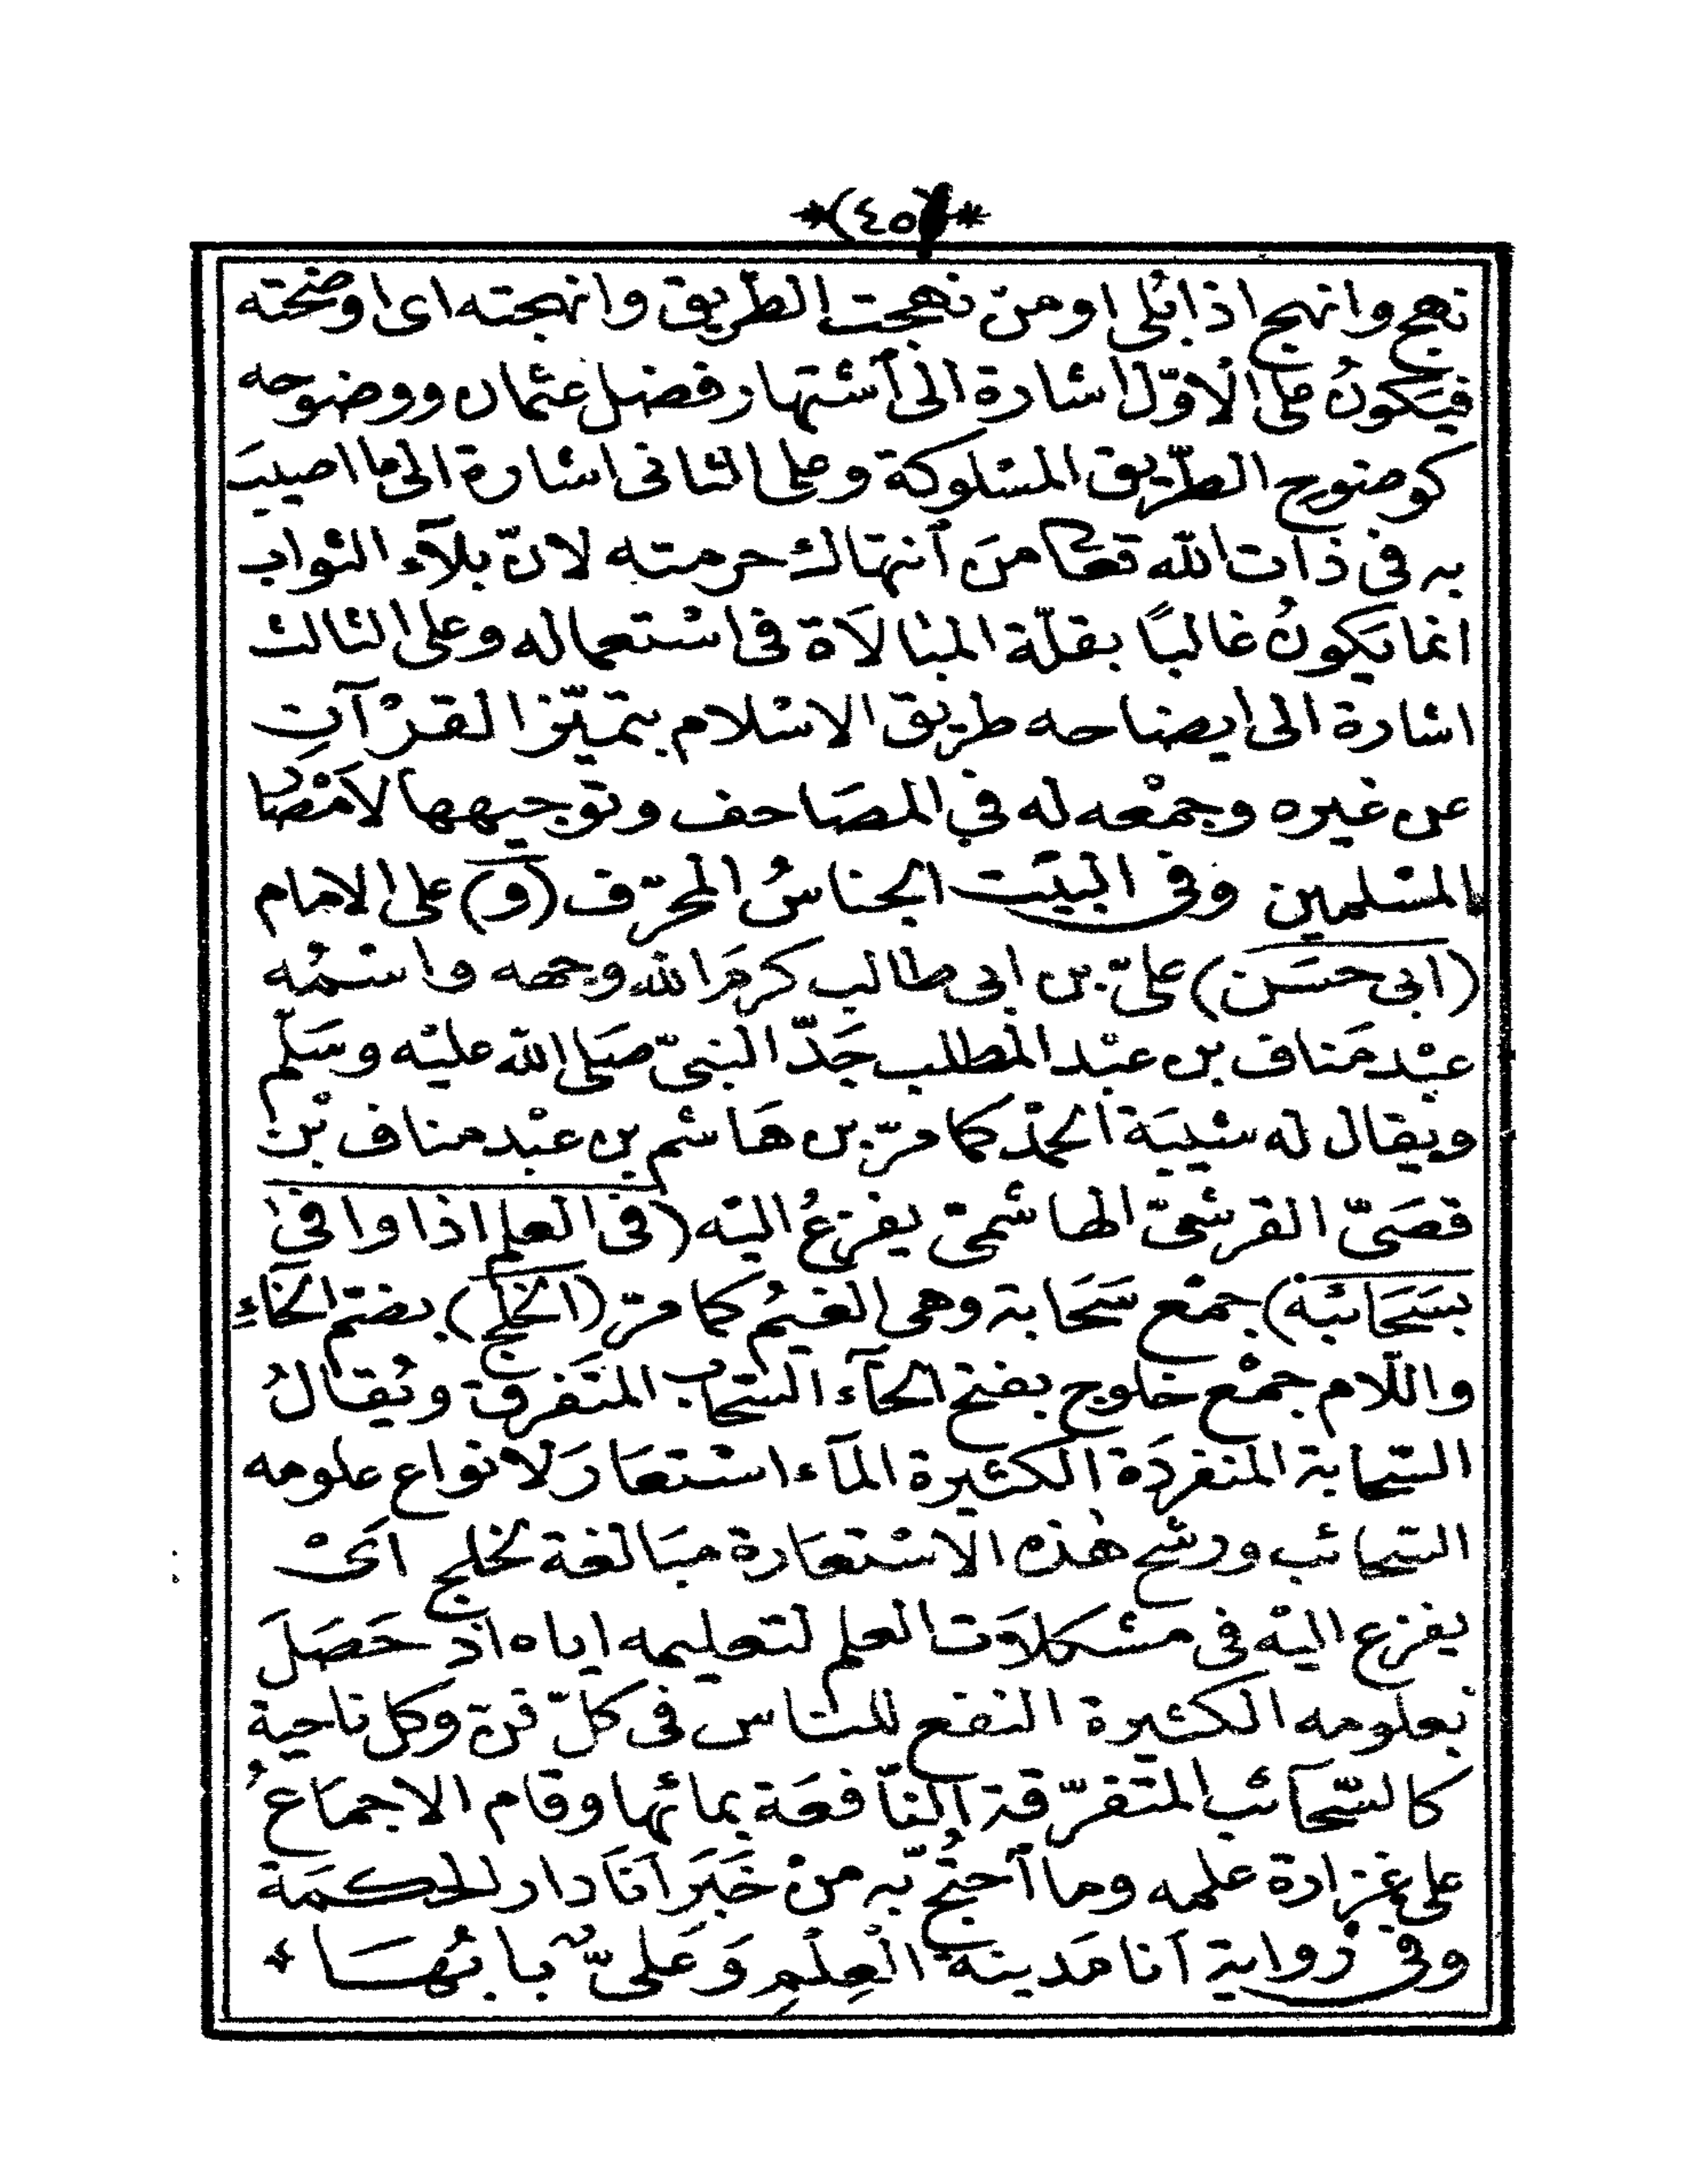 *(٤٥)*
نهج وانهج اذا بُلى او من نهجت الطّريق وانهجته اى اوضحته
فيكونُ على الاوّل اشارة الى اَشتهار فضل عثمان ووضوحه
كوضوح الطّريق المسلوكة وعلى الثانى اشارة الى ما اصيبَ
به فى ذات الله تعا من اَنتهاك حرمته لانّ بلآء الثواب
انما يكونُ غالبًا بقلّة المبالاَة فى استعماله وعلى الثالث
اشارة الى ايضاحه طريق الاسْلام بتميّز القرْآنِ
عن غيره وجمْعه له في المصَاحف وتوجيهها لاَمْصار
المسْلمين وفى البيَت الجناسُ المحرّف (و) على الامام
(ابى حسَن) علىّ بن ابى طالب كرمَ الله وجهه واسْمُه
عبْد مَناف بن عبْد المطلب جَدّ النبىّ صَلى الله عليْه وسَلّم
ويقال له شيبَة الحمْد كما مرّ بن هَاشم بن عبْد مناف بْن
قصَىّ القرشىّ الهاشمىّ يفزعُ اليْه (فى العلم اذا وافىٰ
بسَحَائبْه) جمْع سَحَابة وهى الغيْمُ كما مرّ (الخلج) بضمّ الخاءِ
واللّام جمْع خلوج بفتح الخآء السّحاب المتَفرق ويُقالُ
السّحابة المنفردَة الكثيرة المآء استعَارَ لانواع علومه
السّحائب ورشح هٰذه الاسْتعَارة مبَالغة بخلج اىْ
يفزع اليْه فى مشكلاَت العلم لتعليمه اياه اذ حَصَلَ
بعلومه الكثيرة النفع للنّاس فى كلّ قرن وكل ناحية
كالسّحَائب المتفرّقة النّافعَة بمائها وقام الاجمَاعُ
على غزارة علمه وما اَحتُجّ به منْ خَبَر اَنَا دار الحكمَة
وفى رواية اَنا مَدينة الْعِلْمِ وَعَلىٌّ بابُهَا *